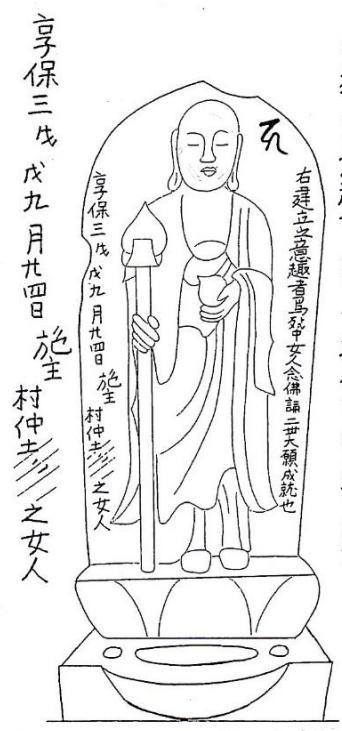 右建立之意趣者爲女人念佛講二世大願成就也
享保三戊戌九月廿四日 施主 村仲之女人
享保三戊戌九月廿四日 施主 村仲之女人